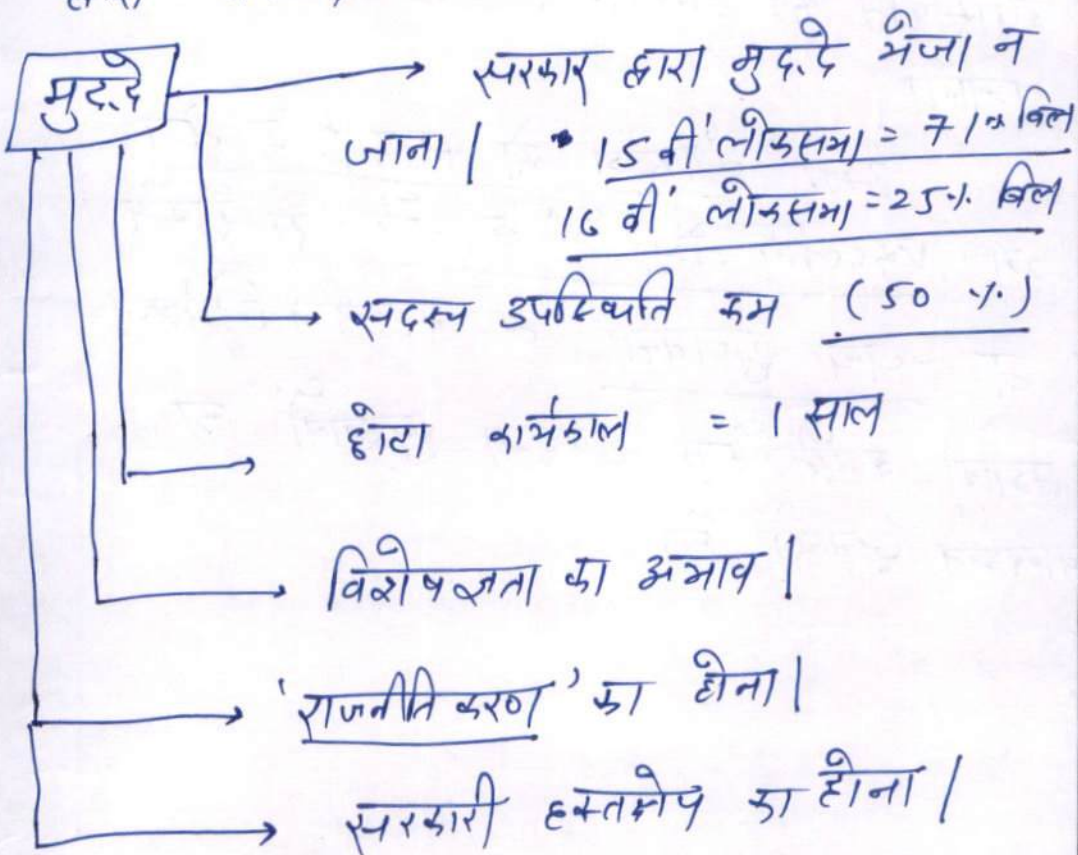 मुद्दे
सरकार द्वारा मुद्दे भेजा न
जाना।
• 15वीं लोकसभा = 71% बिल
16वीं लोकसभा = 25% बिल
सदस्य उपस्थिति कम (50%)
छोटा कार्यकाल = 1 साल
विशेषज्ञता का अभाव।
'राजनीतिकरण' का होना।
सरकारी हस्तक्षेप का होना।